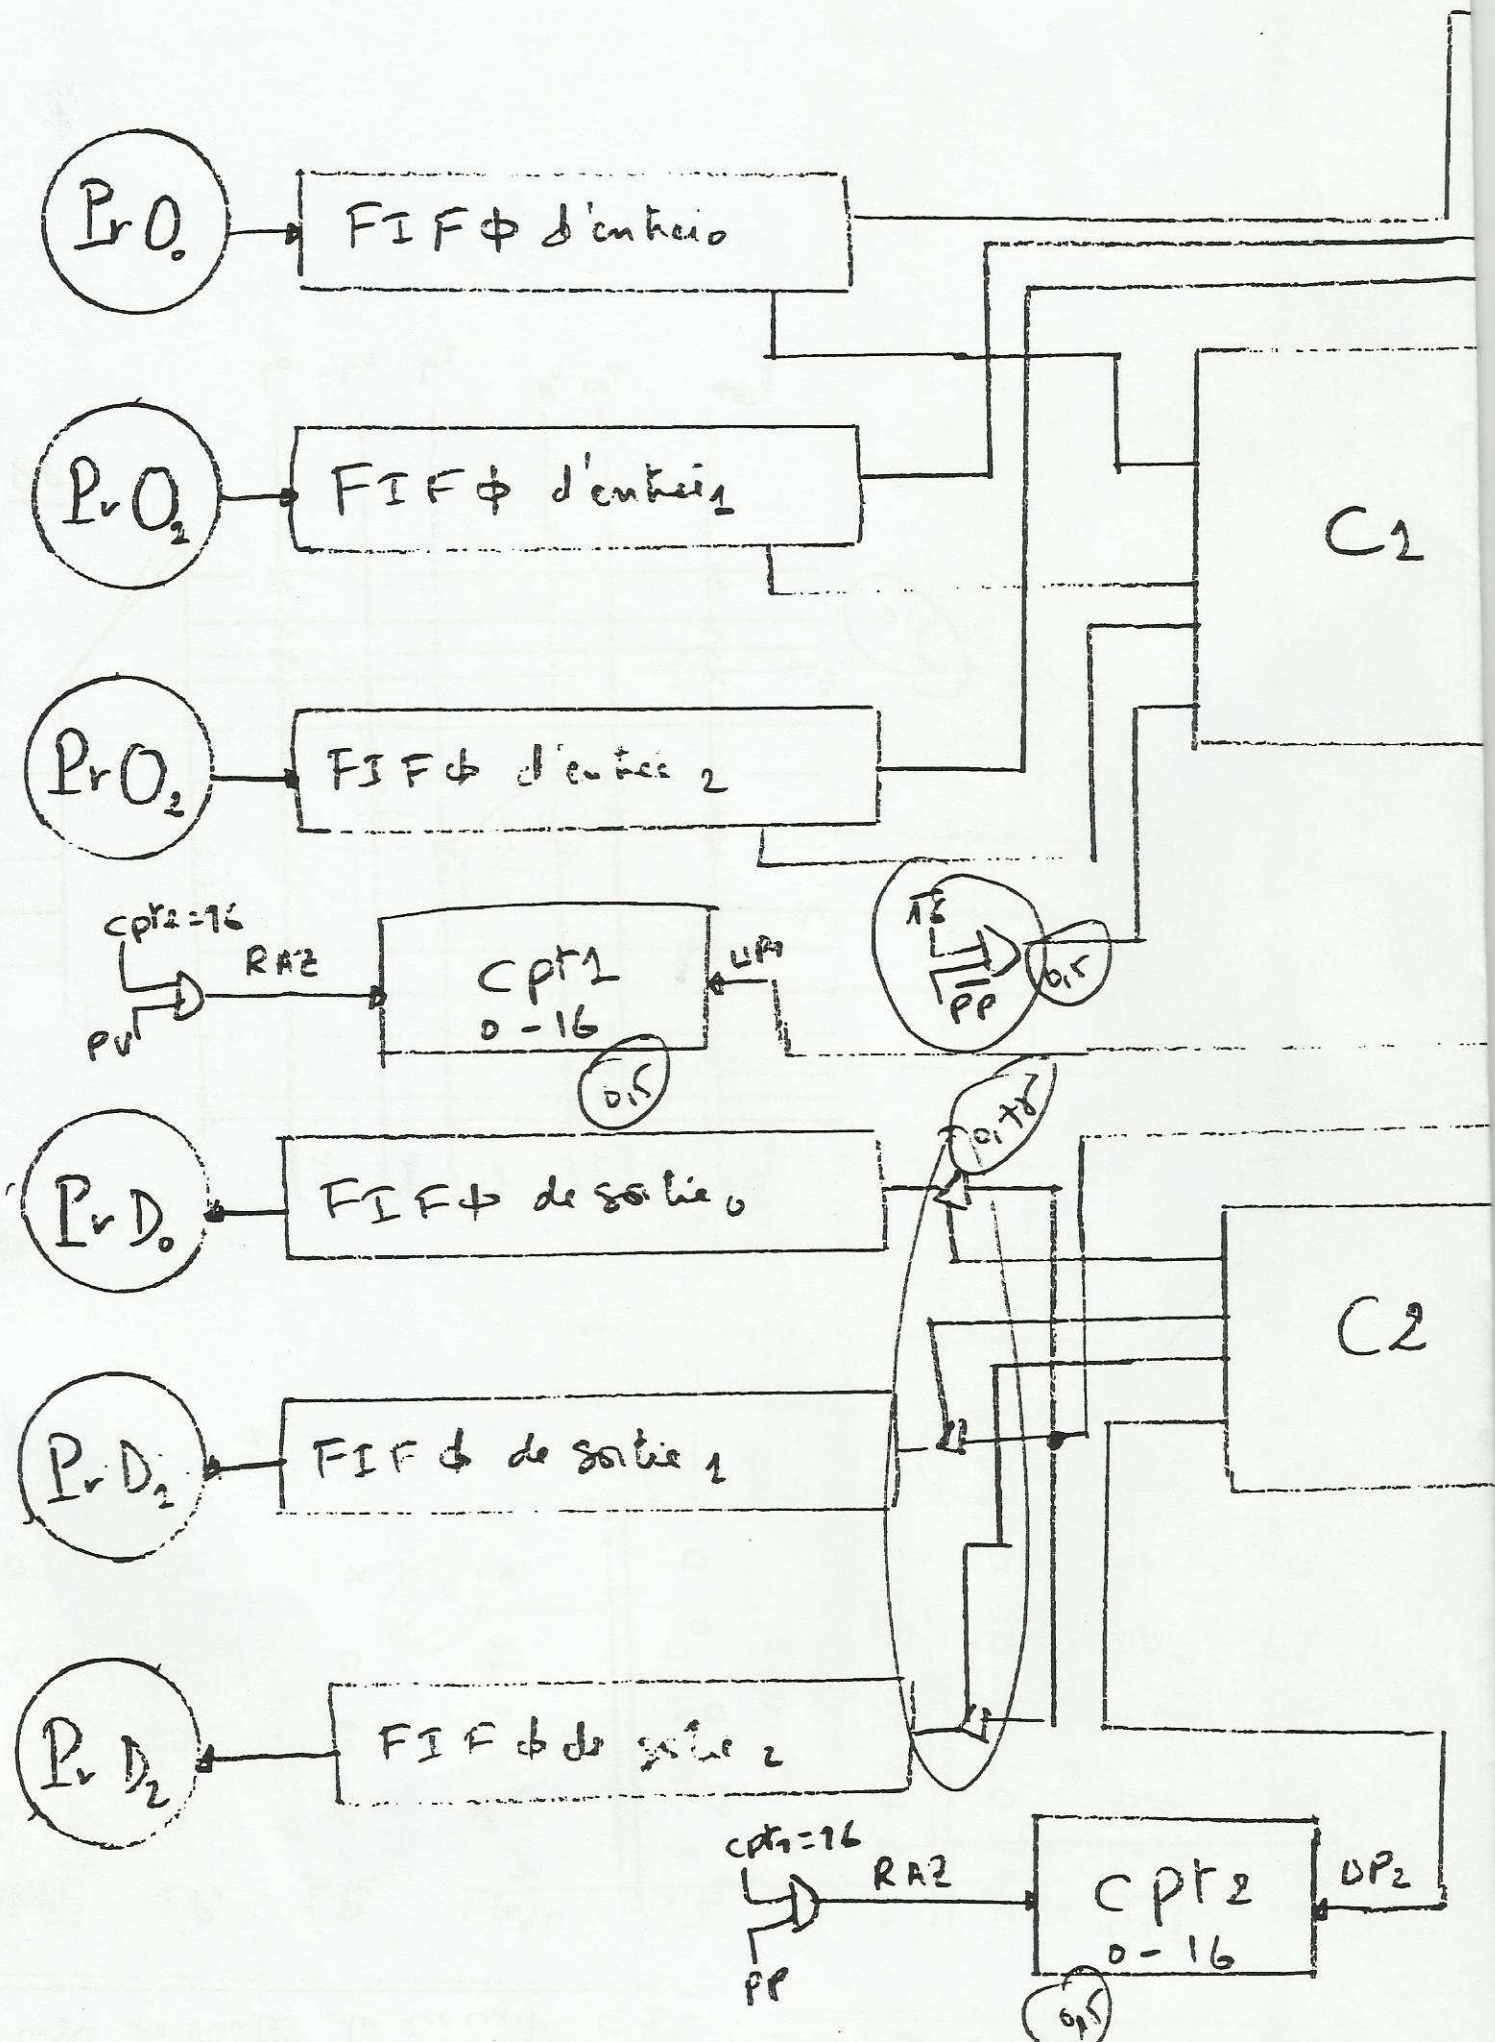 PrO₀
FIFΦ d'entrée₀
PrO₂
FIFΦ d'entrée₁
C1
PrO₂
FIFΦ d'entrée 2
cpt2=16
RAZ
PV
cpt1
0-16
UP1
16
PP
0,5
0,5
0,75
PrD₀
FIFΦ de sortie₀
C2
PrD₁
FIFΦ de sortie 1
PrD₂
FIFΦ de sortie 2
cpt1=16
RAZ
PP
cpt2
0-16
UP2
0,5